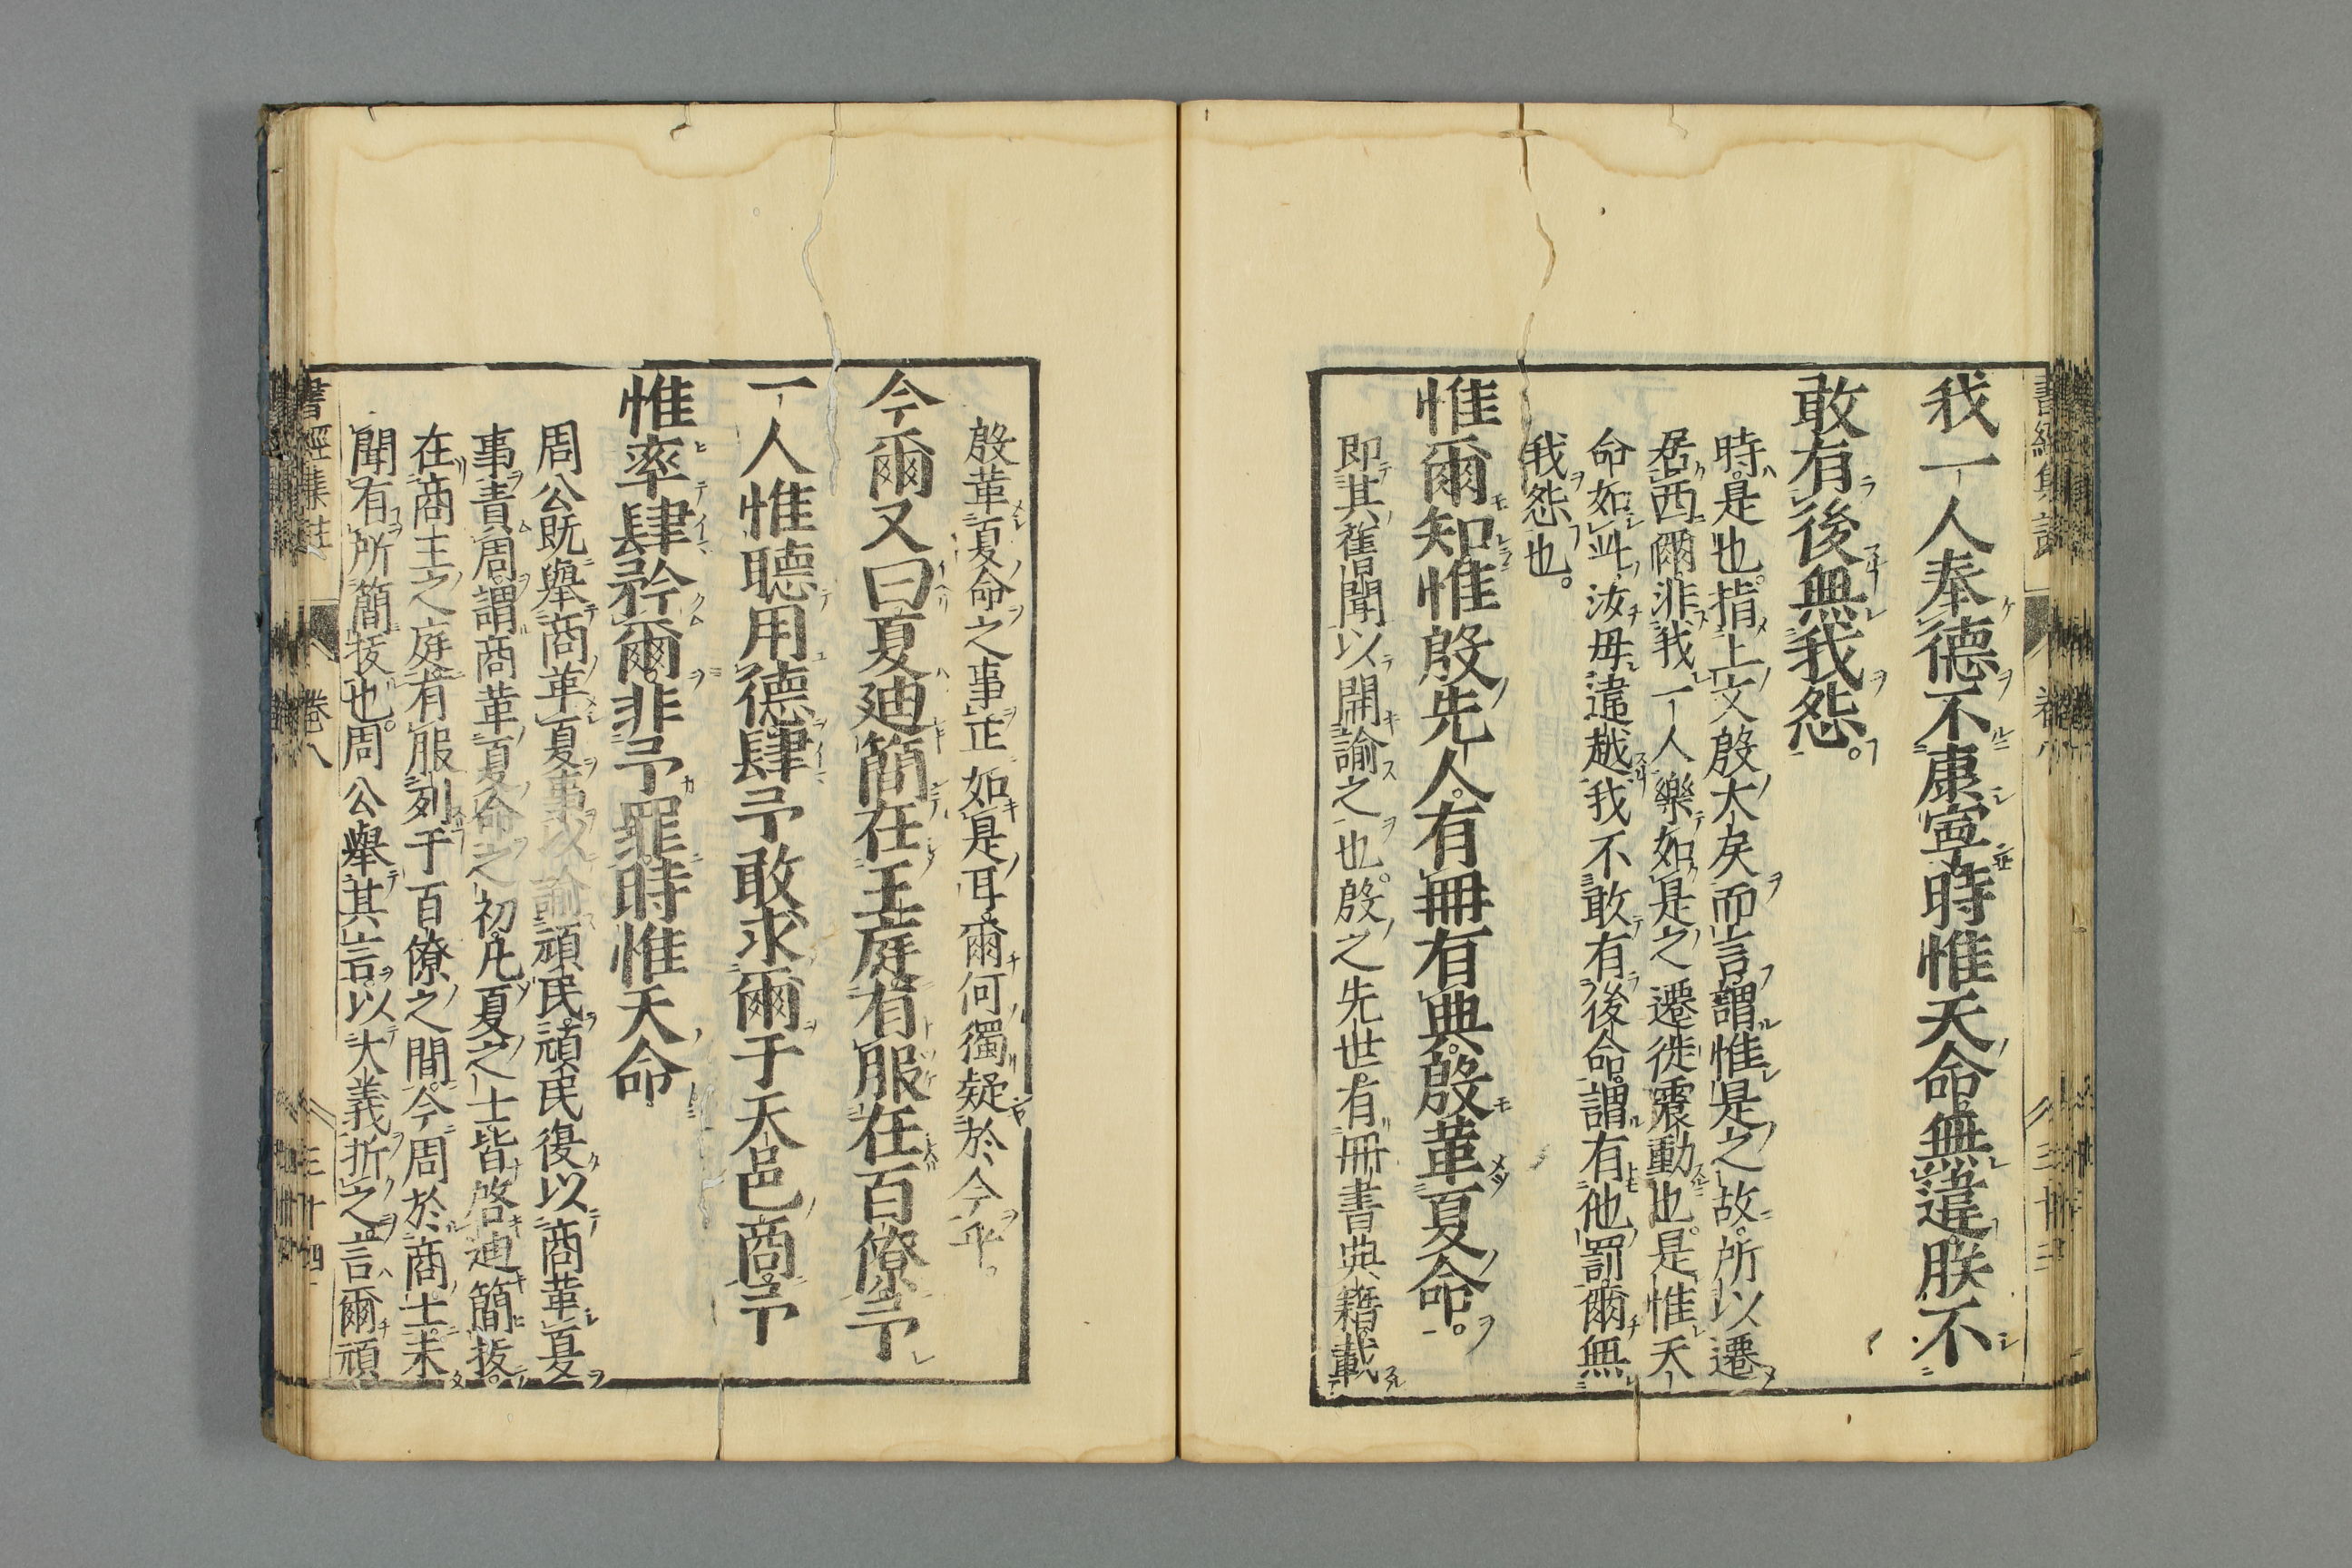 我一人奉德不康寧時惟天命無違朕不
敢有後無我怨。
時是也。指上文殷大戾而言。謂惟是之故。所以遷
居西爾。非我一人樂如是之遷徙震動也。是惟天
命如此。汝毋違越。我不敢有後命。謂有他罰。爾無
我怨也。
惟爾知惟殷先人。有冊有典。殷革夏命。
即其舊聞以開諭之也。殷之先世。有冊書典籍。載
殷革夏命之事。正如是耳。爾何獨疑於今乎。
今爾又曰夏迪簡在王庭。有服在百僚。予
一人惟聽用德。肆予敢求爾于天邑商。予
惟率肆矜爾。非予罪。時惟天命
周公既舉商革夏事以諭頑民。頑民復以商革夏
事責周。謂商革夏命之初。凡夏之士皆啓迪簡拔。
在商王之庭。有服列于百僚之間。今周於商士。未
聞有所簡拔也。周公舉其言。以大義折之言。爾頑
書經集註
卷八
三十四